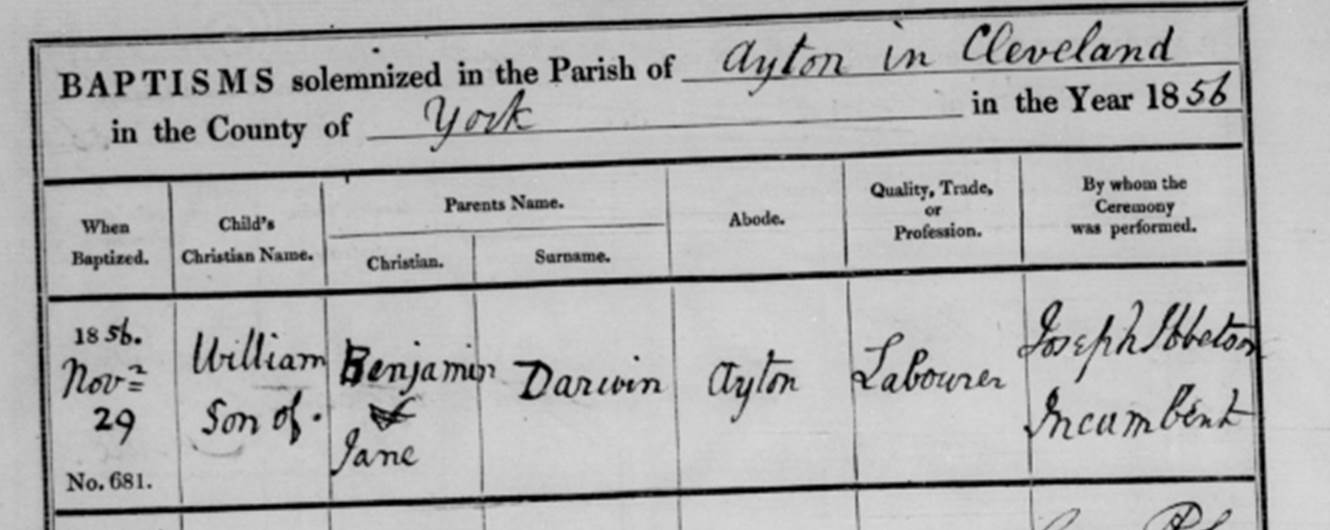 BAPTISMS solemnized in the Parish of Ayton in Cleveland
in the County of York in the Year 1856
When Baptized.
Child's Christian Name.
Parents Name.
Christian.
Surname.
Abode.
Quality, Trade, or Profession.
By whom the Ceremony was performed.
1856.
Novr
29
No. 681.
William
Son of
Benjamin
&
Jane
Darwin
Ayton
Labourer
Joseph Ibbetson
Incumbent